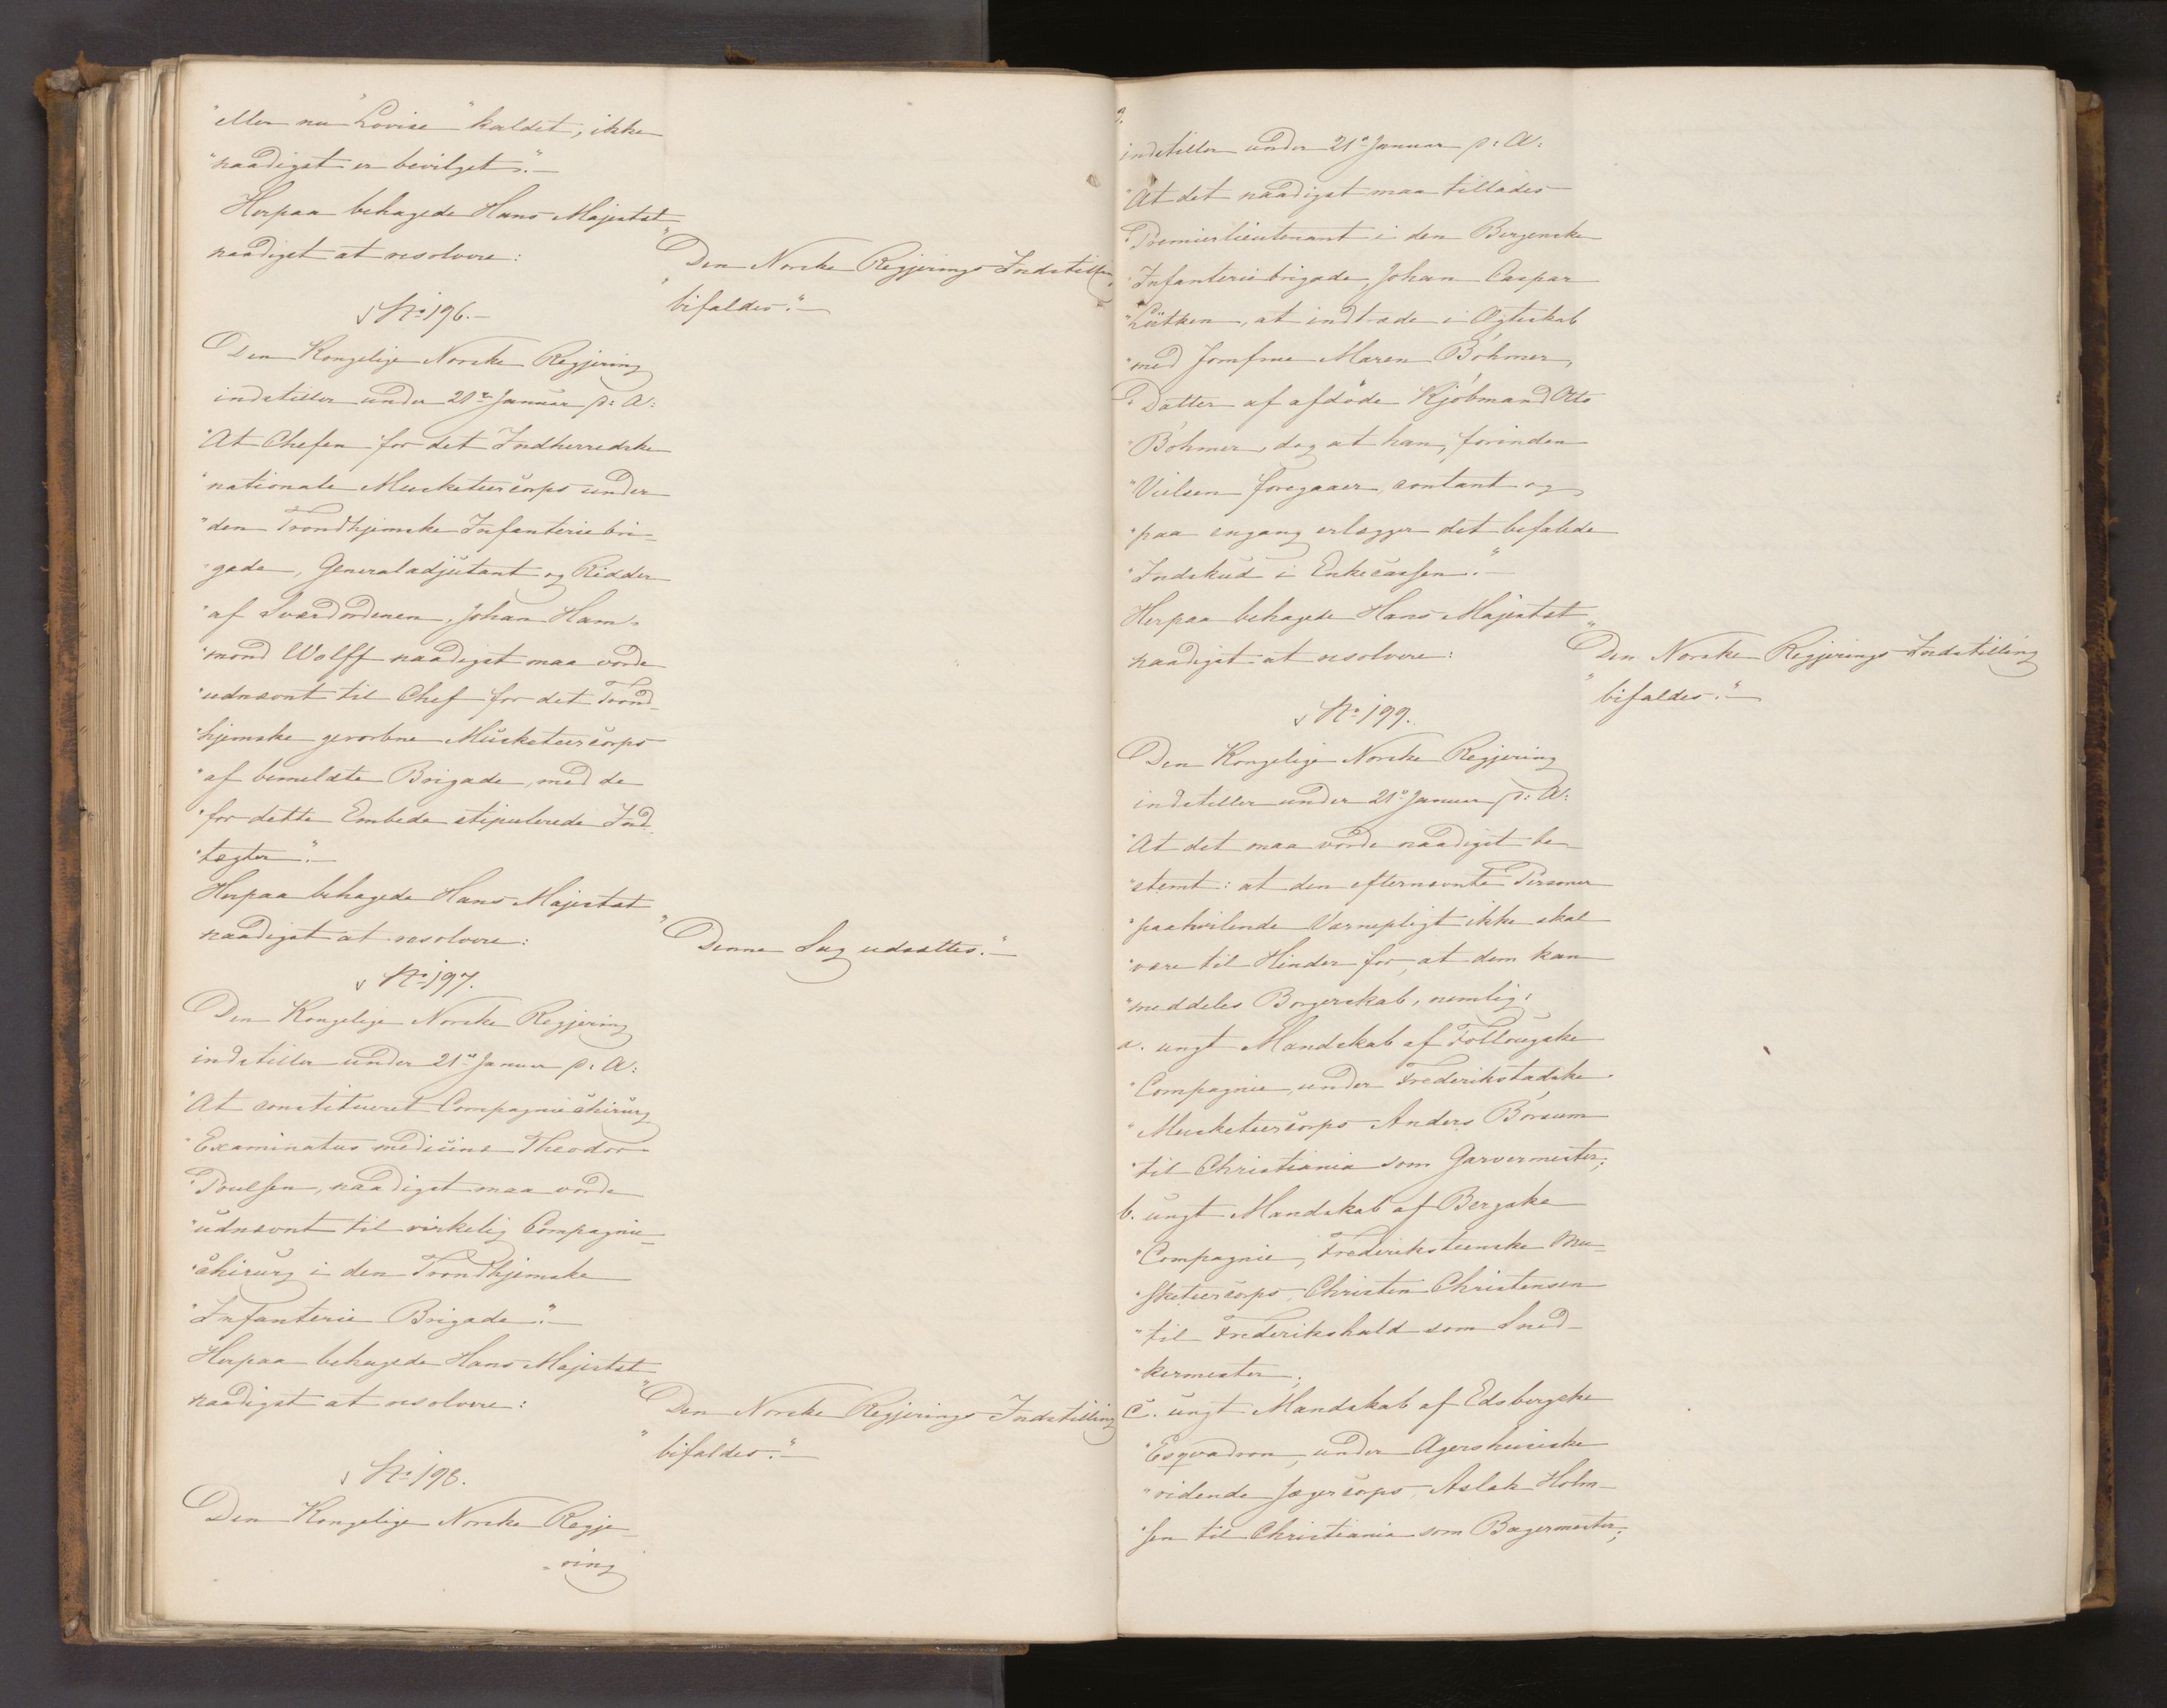 "eller nu "Lovise" kaldet, ikke
"naadigst er bevilget."—
Herpaa behagede Hans Majestæt
naadigst at resolvere:
"Den Norske Regjerings Indstilling
"bifaldes."—
No 196.—
Den Kongelige Norske Regjering
indstiller under 21de Januar p: A:
"At Chefen for det Indherredske
"nationale Musketeercorps under
"den Trondhjemske Infanteriebri-
"gade, Generaladjutant og Ridder
"af Sværdordenen, Johan Ham-
"mond Wolff naadigst maa vorde
"udnævnt til Chef for det Trond-
"hjemske gevorbne Musketeercorps
"af bemeldte Brigade, med de
"for dette Embede stipulerede Ind-
"tægter."—
Herpaa behagede Hans Majestæt
naadigst at resolvere:
"Denne Sag udsættes."—
No 197.
Den Kongelige Norske Regjering
indstiller under 21de Januar p: A:
"At constitueret Compagniechirurg
"Examinatus medicinæ Theodor
"Poulsen, naadigst maa vorde
"udnævnt til virkelig Compagnie-
"chirurg i den Trondhjemske
"Infanterie Brigade."—
Herpaa behagede Hans Majestæt
naadigst at resolvere:
"Den Norske Regjerings Indstilling
"bifaldes."—
No 198.
Den Kongelige Norske Regje-
ring
indstiller under 21de Januar p: A:
"At det naadigst maa tillades
"Premierlieutenant i den Bergenske
"Infanteriebrigade, Johan Caspar
"Lütken, at indtræde i Ægteskab
"med Jomfrue Maren Böhmer,
"Datter af afdöde Kjöbmand Otto
"Böhmer, dog at han, forinden
"Vielsen foregaaer, contant og
"paa engang erlægger det befalede
"Indskud i Enkecassen."—
Herpaa behagede Hans Majestæt
naadigst at resolvere:
"Den Norske Regjerings Indstilling
"bifaldes."—
No 199.
Den Kongelige Norske Regjering
indstiller under 21de Januar p: A:
"At det maa vorde naadigst be-
"stemt: at den efternævnte Personer
"paahvilende Værnepligt ikke skal
"være til Hinder for, at dem kan
"meddeles Borgerskab, nemlig:
a. ungt Mandskab af Follougske
"Compagnie, under Frederikstadske
"Musketeercorps Anders Börsum
"til Christiania som Garvermester;
b. ungt Mandskab af Bergske
"Compagnie, Frederiksteenske Mu-
"sketeercorps, Christen Christensen
"til Frederikshald som Sned-
"kermester;
c. ungt Mandskab af Edsbergske
"Esqvadron, under Agershuusiske
"ridende Jægercorps, Aslak Holm-
"sen til Christiania som Bagermester;